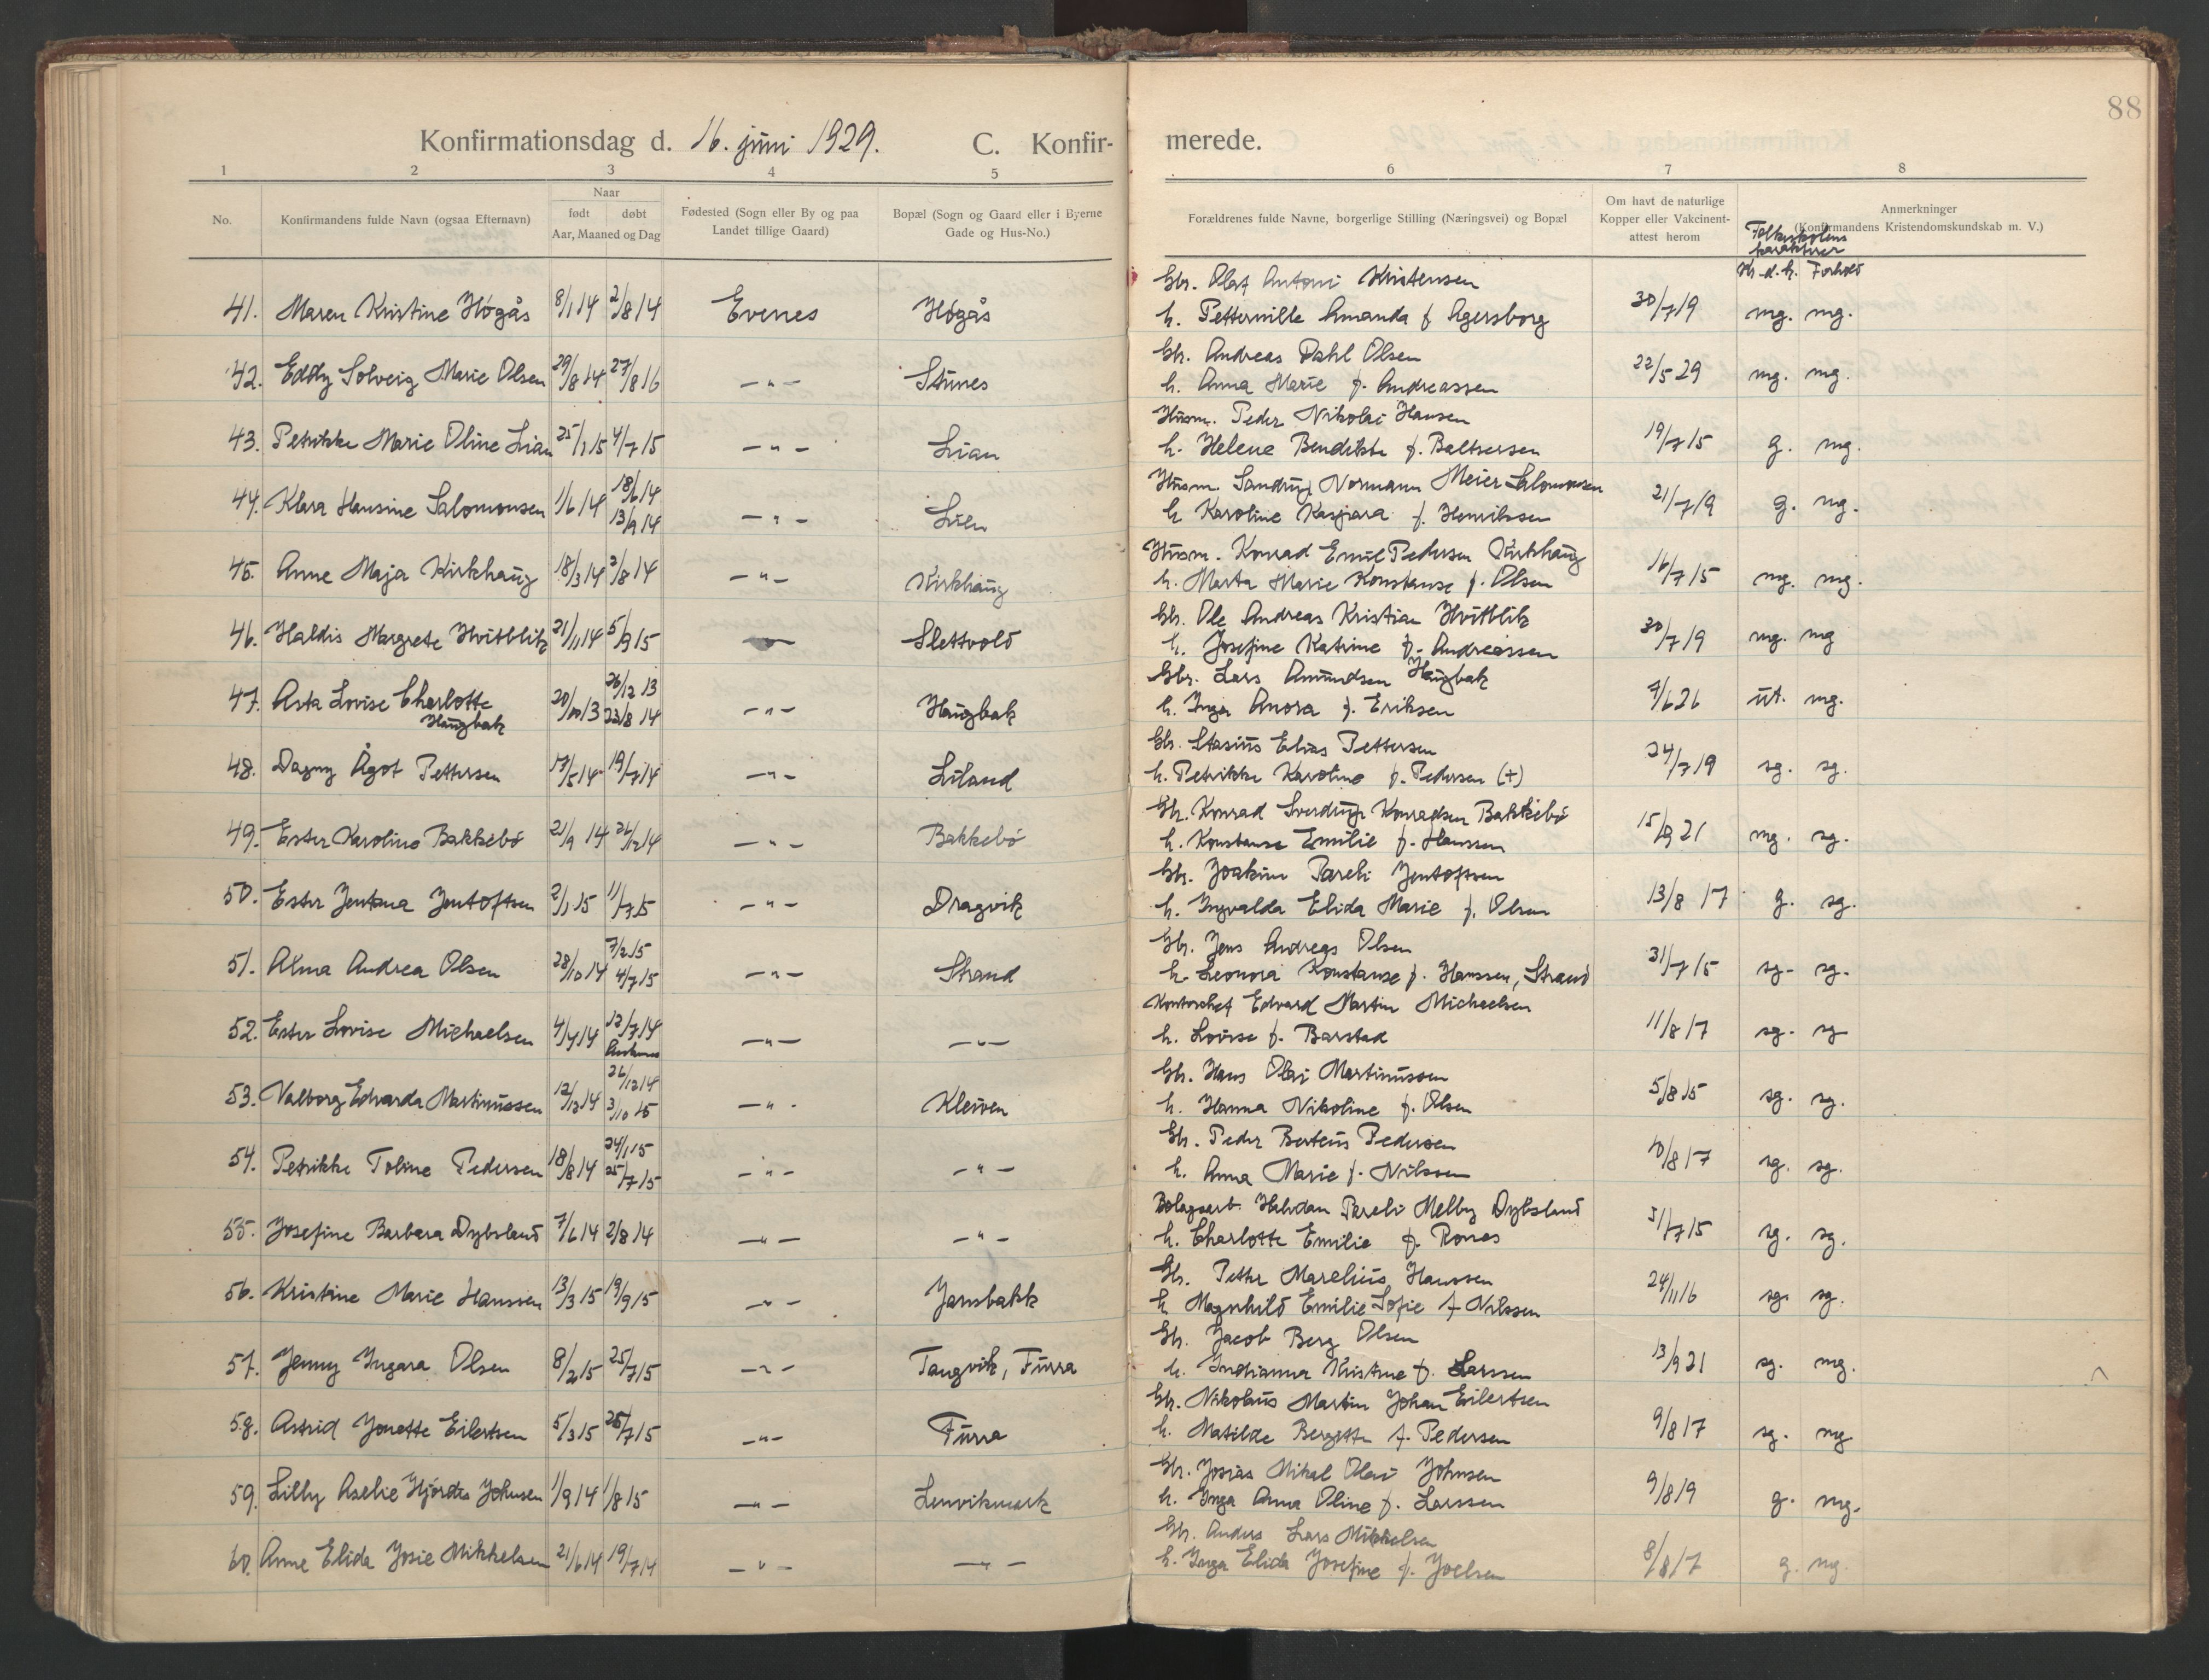 88
Konfirmationsdag d. 16. juni 1929. C. Konfirmerede.
1 2 3 4 5 6 7 8
No. Konfirmandens fulde Navn (ogsaa Efternavn) Naar født døbt Aar, Maaned og Dag Fødested (Sogn eller By og paa Landet tillige Gaard) Bopæl (Sogn og Gaard eller i Byerne Gade og Hus-No.) Forældrenes fulde Navne, borgerlige Stilling (Næringsvei) og Bopæl Om havt de naturlige Kopper eller Vakcinentattest herom Anmerkninger (Konfirmandens Kristendomskundskab m. V.)
Folkeskolens karakterer
Kr.d.k. Forhold
Gbr. Olaf Antoni Kristensen
41. Maren Kristine Høgås 8/1 14 2/8 14 Evenes Høgås h. Petternille Amanda f Agersborg 30/7 19 mg. mg.
Gbr. Andreas Dahl Olsen
42. Eddy Solveig Marie Olsen 29/8 14 27/8 16 -"- Stunes h. Anna Marie f. Andreassen 22/5 29 mg. mg.
Husm. Peder Nikolai Hansen
43. Petrikke Marie Oline Lian 25/1 15 4/7 15 -"- Lian h. Helene Bendikte f. Baltsersen 19/7 15 g. mg.
Husm. Sandrup Normann Meier Salomonsen
44. Klara Hansine Salomonsen 1/6 14 18/6 14 13/9 14 -"- Lien h Karoline Kaspara f. Henriksen 21/7 19 g. mg.
Husm. Konrad Emil Pedersen Kirkhaug
45. Anne Maja Kirkhaug 18/3 14 2/8 14 -"- Kirkhaug h. Marta Marie Konstanse f. Olsen 16/7 15 mg. mg.
Gbr. Ole Andreas Kristian Hvitblik
46. Haldis Margrete Hvitblik 21/11 14 5/9 15 Slettvold h. Josefine Katrine f. Andreassen 30/7 19 mg. mg
Gbr. Lars Amundsen Haugbak
47. Asta Lovise Charlotte Haugbak 20/10 13 26/12 13 23/8 14 -"- Haugbak h. Inga Anora f. Eriksen 7/6 26 ut. mg.
Gbr. Stasius Elias Pettersen
48. Dagny Ågot Pettersen 17/5 14 19/7 14 -"- Liland h. Petrikke Karoline f. Pedersen (+) 24/7 19 sg. sg.
Gbr. Konrad Sverdrup Konradsen Bakkebø
49. Ester Karoline Bakkebø 21/9 14 26/12 14 -"- Bakkebø h. Konstanse Emilie f. Hanssen 15/9 21 mg. sg.
Gbr. Joakim Pareli Jentoftsen
50. Ester Jentina Jentoftsen 2/1 15 11/7 15 -"- Dragvik h. Ingvalda Elida Marie f. Olsen 13/8 17 g. sg.
Gbr. Jens Andreas Olsen
51. Alma Andrea Olsen 28/10 14 7/2 15 4/7 15 -"- Strand h. Leonora Konstanse f. Hanssen, Strand 31/7 15 sg. sg.
Kontorchef Edvard Martin Michaelsen
52. Ester Lovise Michaelsen 4/4 14 12/7 14 -"- -"- h. Lovise f. Barstad 11/8 17 sg. sg
Gbr. Hans Olai Martinussen
53. Valborg Edvarda Martinussen 12/12 14 26/12 14 3/10 15 -"- Kleiven h. Hanna Nikoline f. Olsen 5/8 15 sg. sg.
Gbr. Peder Berteus Pedersen
54. Petrikke Toline Pedersen 18/8 14 24/1 15 25/7 15 -"- -"- h. Anna Marie f. Nilssen 10/8 17 sg. sg.
Bolagsarb. Halvdan Pareli Melby Dybsland
55. Josefine Barbara Dybsland 7/6 14 2/8 14 -"- -"- h. Charlotte Emilie f. Rones 31/7 15 sg. sg.
Gbr. Petter Marelius Hanssen
56. Kristine Marie Hanssen 13/3 15 19/9 15 -"- Jarsbakk h Magnhild Emilie Sofie f Nilssen 24/11 16 sg. sg.
Gbr. Jacob Berg Olsen
57. Jenny Ingara Olsen 8/2 15 25/7 15 -"- Tangvik, Furra h. Indianna Kristine f. Larssen 13/9 21 sg. mg.
Gbr. Nikolaus Martin Johan Eilertsen
58. Astrid Jonette Eilertsen 5/3 15 25/7 15 -"- Furra h. Matilde Bergitte f. Pedersen 9/8 17 sg. mg
Gbr. Josias Mikal Olai Johnsen
59. Lilly Aselie Hjørdis Johnsen 1/9 14 1/8 15 -"- Lenvikmark h. Inga Anna Oline f. Larssen 9/8 19 g. mg.
Gbr. Anders Lars Mikkelsen
60. Anne Elida Josie Mikkelsen 21/6 14 19/7 14 -"- -"- h. Inga Elida Josefine f. Joelsen 8/8 17 g. mg.